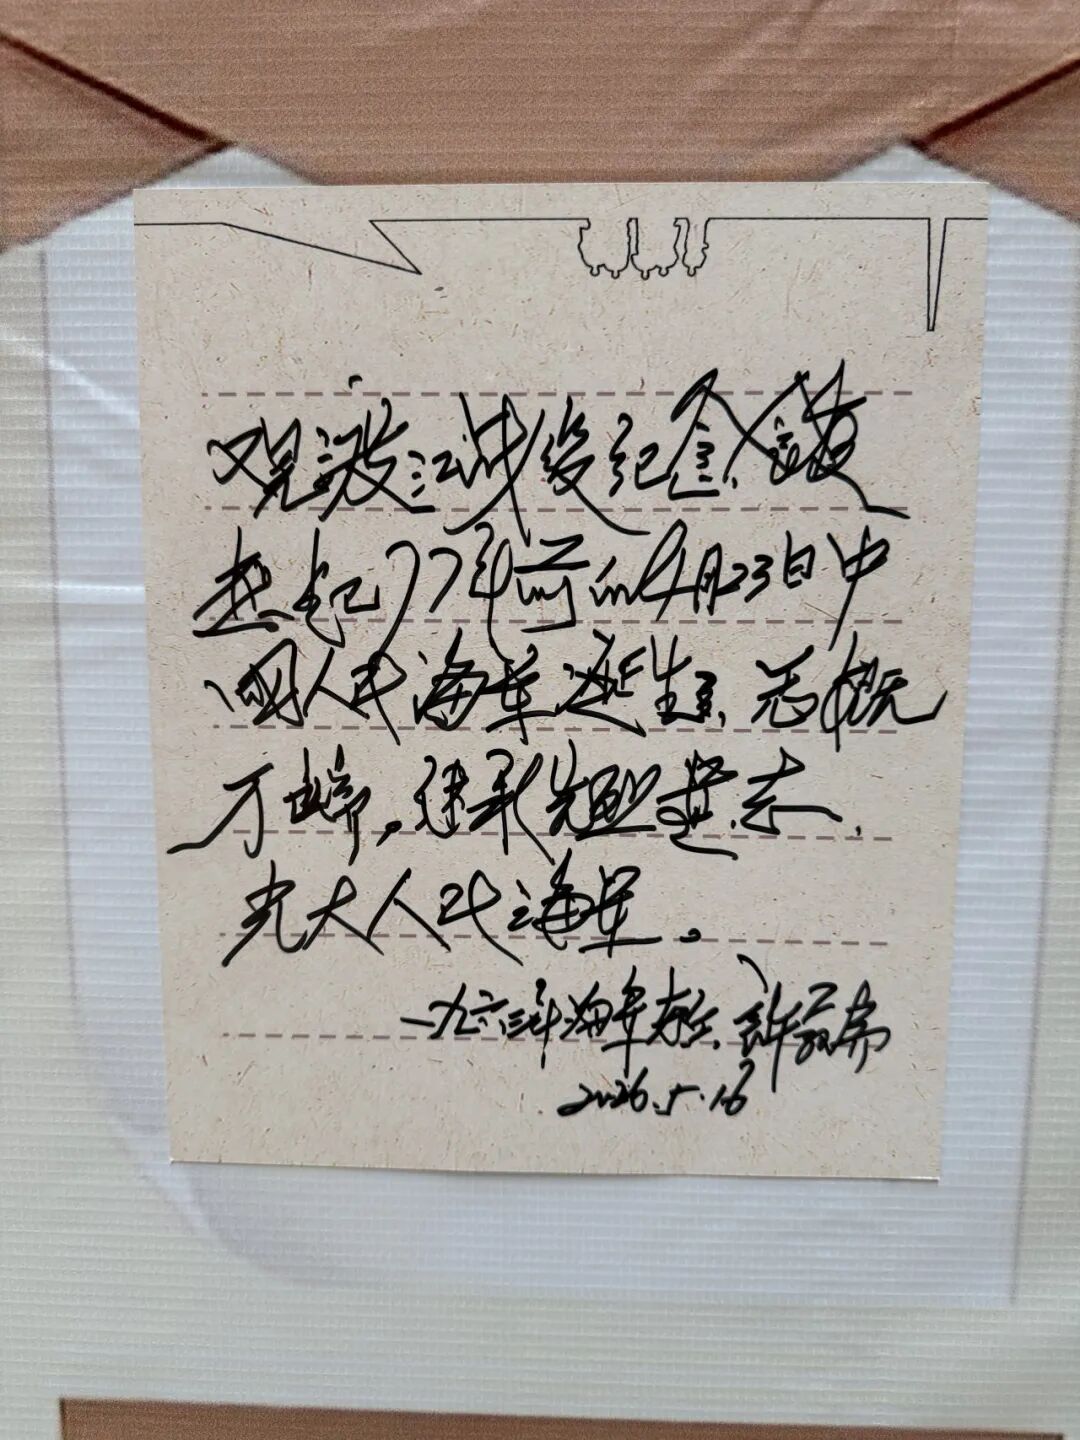 观渡江战役纪念馆
想起77年前的4月23日中
国人民海军诞生, 感慨
万端,继承先烈遗志,
光大人民海军。
一九六三年海军老兵, 许
2026.5.16